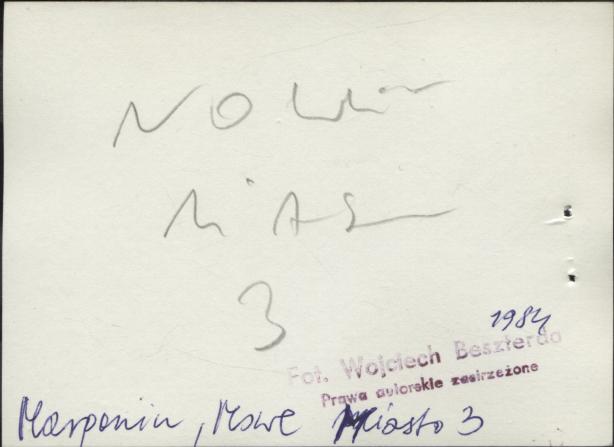 NOW
MIAS
3
1984
Fot. Wojciech Beszterda
Prawa autorskie zastrzeżone
Miasto 3